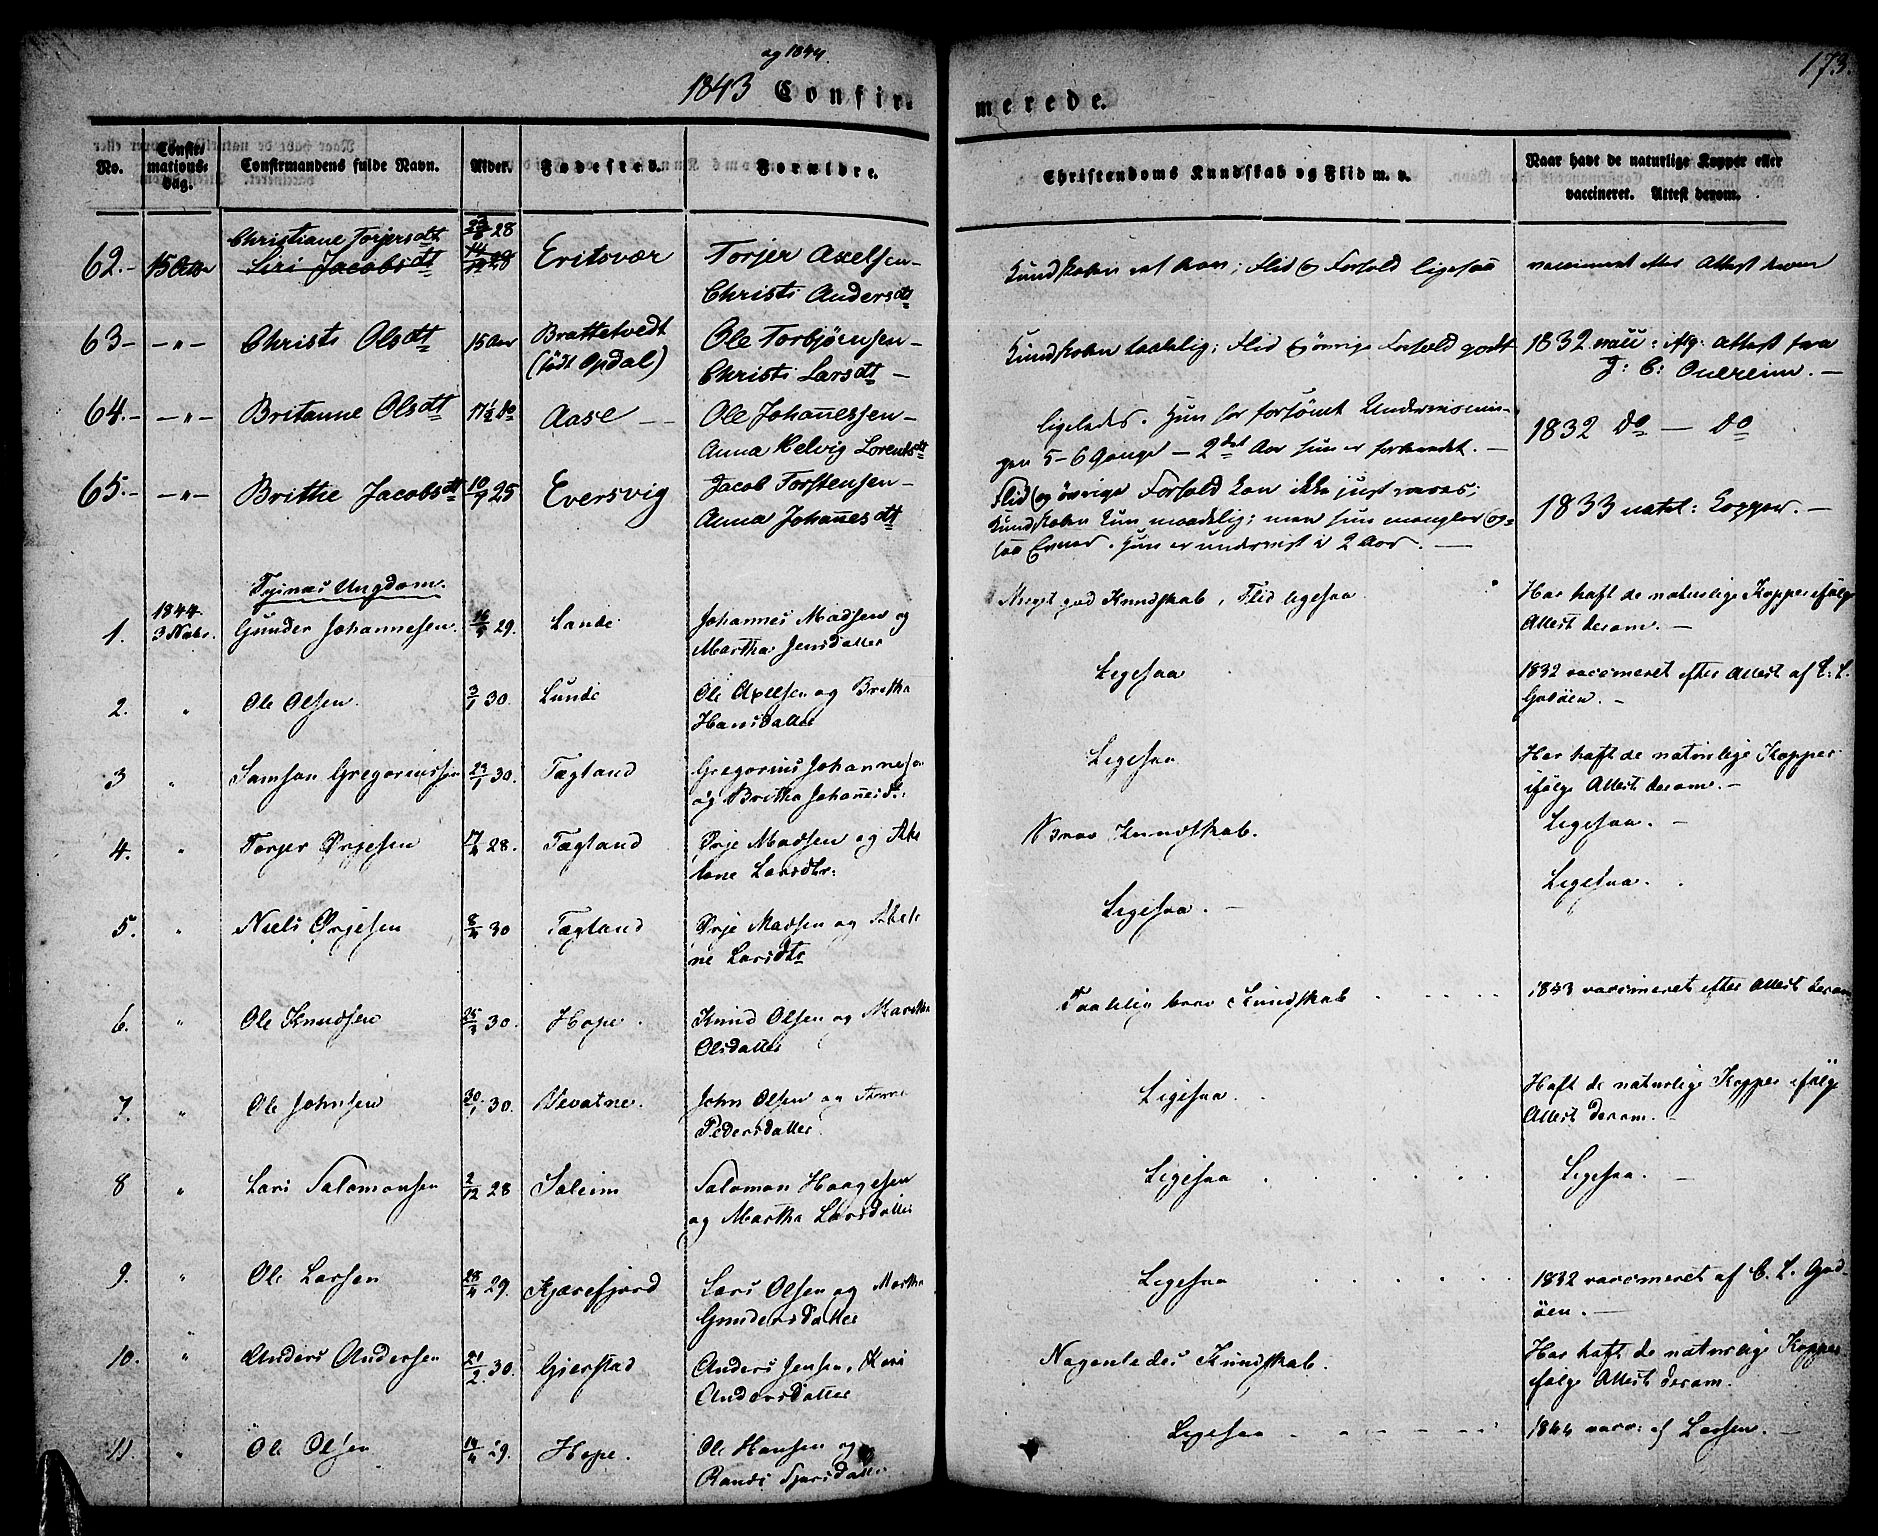 173.
og 1844.
1843 Confir-
merede.
No.
Confir-
mations-
dag.
Confirmandens fulde Navn.
Alder.
Fødested.
Forældre.
Christendoms Kundskab og Flid m. v.
Naar havt de naturlige Kopper eller
vaccineret. Attest derom.
Christiane Torjersdt 28
62.- 15 Siri Jacobsdt 14/12 28 Eritsvær Torjer Axelsen-
Christi Andersdt
Kundskaben af Flid og Forhold ligesaa
vaccineret efter Attest derom
63- -"- Christi Olsdt 15 Aar Brattetvedt Ole Torbjørnsen-
(født Opdal) Christi Larsdt -
Kundskaben taalelig; Flid og øvrige Forhold godt
1832 vacc: Attest fra
J: C: -
64.- -"- Britanne Olsdt 17½ do Aase -- Ole Johannessen-
Anna Helvig Lorentsdt
ligeledes. Hun har forsømt Underviisnin-
gen 5-6 Gange - 2det Aar hun er forberedet. -
1832 do - do
65.- -"- Brithe Jacobsdt 10/9 25 Eversvig Jacob Torstensen-
Anna Johannesdt
Flid og øvrige Forhold kan ikke just roses;
Kundskaben kun maadelig; men hun mangler og-
saa Evner. Hun er underviist i 2 Aar. -
1833 natl: Kopper. -
Tysnæs Ungdom.
1. 1844. 3 Gunder Johannesen. 16/9 29. Lande Johannes Madsen og
Martha Jensdatter
Meget god Kundskab, Flid ligesaa
Har haft de naturlige Kopper ifølge
Attest derom. -
2. " Ole Olsen. 3/1 30. Lunde Ole Axelsen og Britha
Hansdatter
Ligesaa
1832 vaccineret efter Attest af C. L.
Godøen. -
3 " Samson Gregoriussen 23/1 30. Tægland Gregorius Johannesen
og Britha Johannesdt.
Ligesaa
Har haft de naturlige Kopper
ifølge Attest derom. -
4. " Torjer Ørjesen 17/4 28. Tægland Ørje Madsen og Abe
lone Larsdtr:
Brav Kundskab.
Ligesaa. -
5. " Niels Ørjesen 8/4 30 Tægland Ørje Madsen og Abelo
ne Larsdtr
Ligesaa. -
Ligesaa. .
6. " Ole Knudsen 25/3 30. Hope. Knud Olsen og Martha
Olsdatter
Taalelig brav Kundskab
1843 vaccineret efter Attest derom
7. " Ole Johnsen 30/1 30. Nevatne. John Olsen og
Pedersdatter.
Ligesaa.
Haft de naturlige Kopper ifølge
Attest derom.
8 " Lars Salomonsen 2/12 28 Saleim Salomon Haagesen
og Martha Larsdatter
Ligesaa
Ligesaa. -
9. " Ole Larsen 28/4 29. Kjærefjord Lars Olsen og Martha
Gundersdatter
Ligesaa
1832 vaccineret af C. L. God-
øen. -
10. " Anders Andersen 21/2 30. Gjerstad Anders Jensen, Kari
Andersdatter
Nogenledes Kundskab.
Har haft de naturlige Kopper
ifølge Attest derom.
11. " Ole Olsen 14/4 29. Hope. Ole Hansen og
Randi Sjursdatter
Ligesaa
1844 vacc: af Larsen. -